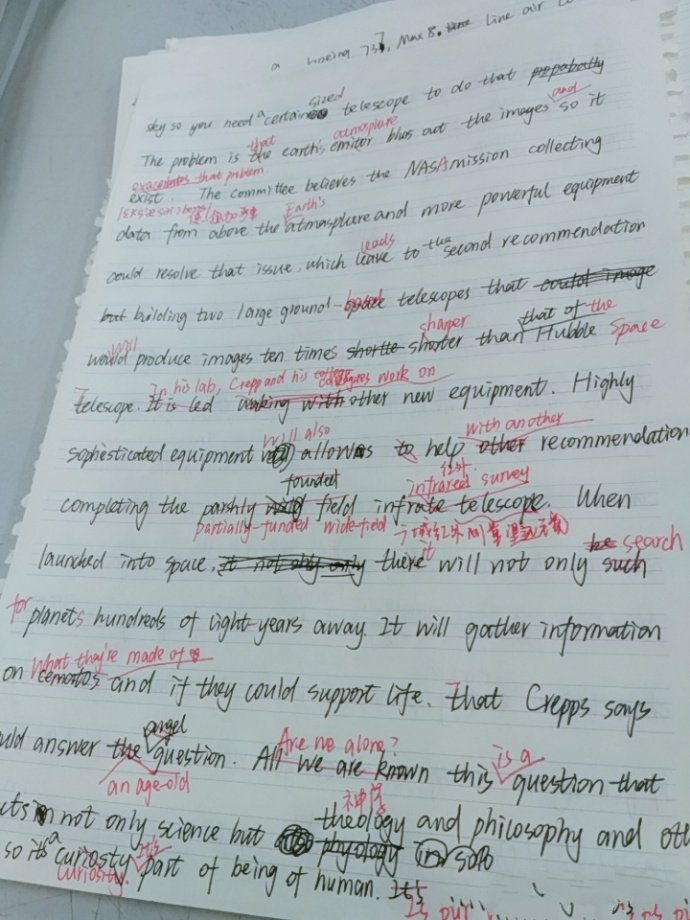 a boeing 737, Max 8. Line air
sized
sky so you need a certain telescope to do that propabally
that atmosphere and
The problem is the earth's emitor blurs out the images so it
exacerbates that problem
exist. The committee believes the NASA mission collecting
Earth's
data from above the atmosphere and more powerful equipment
leads
could resolve that issue, which leave to the second recommendation
but building two large ground-based telescopes that could image
will sharper that of the
would produce images ten times shorter than Hubble Space
In his lab, Crepp and his colleagues work on
Telescope. It is led making with other new equipment. Highly
will also with another
sophesticated equipment allows to help other recommendation
founded 红外 infrared survey
completing the parshly field infrate telescope. When
partially-funded wide-field
it
launched into space, it not only only there will not only such be search
for planets hundreds of light-years away. It will gather information
What they're made of
on cematos and if they could support life. That Crepps says
angel Are we alone? is a
uld answer the question. All we are known this question that
an age-old
神学
cts not only science but theology and philosophy and oth
phyology in soto
so it's a curiosty It's part of being of human. It's
curiosity.